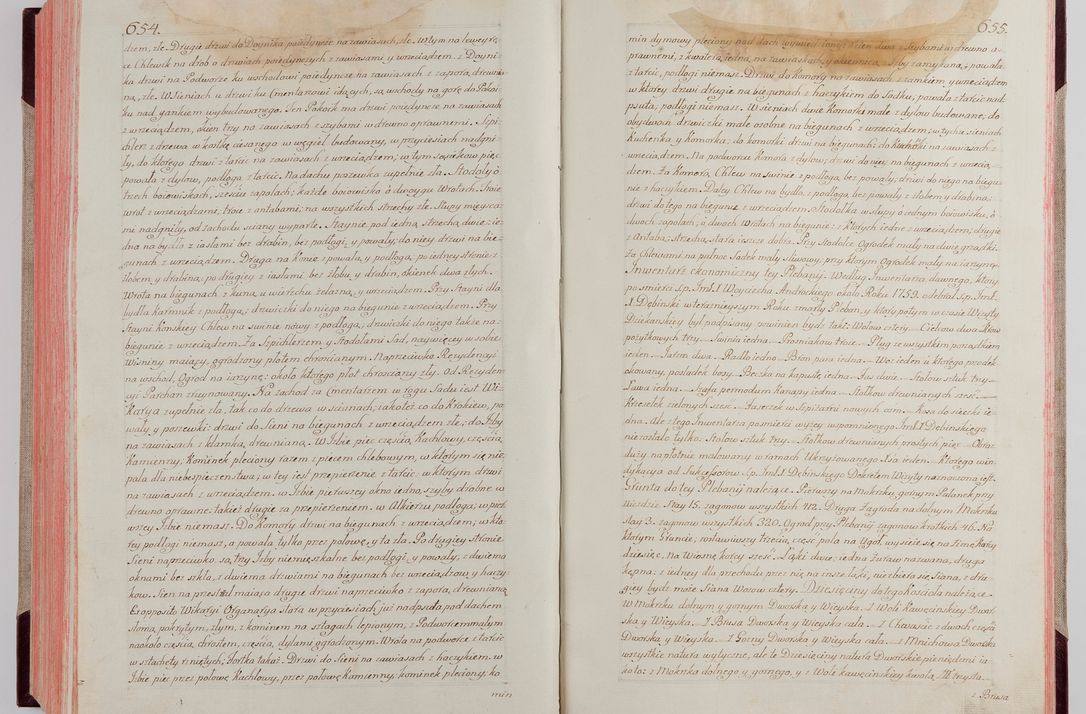 654.
dzem, złe. Drugie drzwi do Doynika poiedyncze na zawiasach, złe. W tym na lewey rę-
ce Chlewik na drob o drzwiach poiedynczych z zawiasami y wrzeciądzem. z Doyni-
ka drzwi na Podworze ku wschodowi poiedyncze na zawiasach z zaporą drewnia-
ną, złe. W Sieniach u drzwi ku Cmentarzowi idących, są wschody na gorę do Pokoi-
ku nad gankiem wybudowanego. Ten Pokoik ma drzwi poiedyncze na zawiasach
z wrzeciądzem, okien trzy na zawiasach z szybami w drewno oprawnemi. Szpi-
chlerz z drzewa w kostkę ciesanego w węgieł budowany, w przyciesiach nadgni-
ły, do ktorego drzwi z tarcic na zawiasach z wrzeciądzem; w tym sąsiekow pięć
powała z dylow, podłoga z tarcic. Na dachu poszewka zupełnie zła. Stodoły o
trzech boiowiskach, sześciu zapolach; każde boiowisko o dwoygu Wrotach. Troie
wrot z wrzeciądzami, troie z antabami, na wszystkich strzechy złe. Słupy mieysca-
mi nadgniły, od zachodu sciany wyparte. Staynie pod iedną strzechą dwie: ie-
dna na bydło z iasłami bez drabin, bez podłogi, y powały; do niey drzwi na bie-
gunach z wrzeciądzem. Druga na Konie z powałą, y podłogą; po iedney stronie z
żłobem y drabiną; po drugiey z iasłami bez żłobu y drabin, okienek dwa złych.
Wrota na biegunach z kuną, u wierzchu żelazną, y wrzeciądzem. Przy Stayni dla
bydła karmnik z podłogą; drzwiczki do niego na biegunie z wrzeciądzem. Przy
Stayni Konskiey Chlew na swinie nowy z podłogą; drzwiczki do niego także na
biegunie z wrzeciądzem. Za Szpichlerzem y Stodołami Sad, naywięcey w sobie
Wiśniny maiący, ogrodzony płotem chrościanym. Naprzeciwko Rezydencyi
na wschod. Ogrod na iarzynę: około ktorego płot chrościany zły. Od Rezyden-
cyi Parchan zruynowany. Na zachod za Cmentarzem w rogu Sadu iest Wi-
karya zupełnie zła, tak co do drzewa w scianach, iakoteż co do Krokiew, po-
wały y poszewki: drzwi do Sieni na biegunach z wrzeciądzem złe; do Izby
na zawiasach z klamką, drewnianą. W Izbie piec częścią Kachlowy, częścią
Kamienny, Kominek pleciony razem z piecem chlebowym, w ktorym się nie
pala dla niebespieczenstwa; w tey iest przepierzenie z tarcic w ktorym drzwi
na zawiasach z wrzeciądzem. w Izbie pierwszey okno iedno, szyby drobne w
drewno oprawne: takież drugie za przepierzeniem. w Alkierzu podłoga; w pierw-
wszey Izbie niemasz. Do Komory drzwi na biegunach z wrzeciądzem, w kto-
rey podłogi niemasz, a powała tylko przez połowę, y ta zła. Po drugiey stronie
Sieni naprzeciwko są trzy Izby niemieszkalne bez podłogi, y powały, z dwiema
oknami bez szkła, z dwiema drzwiami na biegunach bez wrzeciądzow, y haczy-
kow. Sien na przestrzał maiąca drugie drzwi naprzeciwko z zaporą, drewnianą.
Ex opposito Wikaryi Organarya stara w przyciesiach już nadpsuła, pod dachem
słomą pokrytym, złym, z kominem na sztagach lepionym; z Podworzem małym
naokoło częścią, chrostem, częścią, dylami ogrodzonym. Wrota na podworze z tarcic
w sztachety rzniętych; fortka takaż. Drzwi do Sieni na zawiasach z haczykiem. w
Izbie piec przez połowę Kachlowy, przez połowę Kamienny; kominek pleciony, ko-
min
655.
min dymowy pleciony nad dach wywiedziony; okien dwa z szybami w drewno o-
prawnemi, z kwaterą iedną, na zawiaskach, y okiennicą, Izby zamykaną; powała
z tarcic, podłogi niemasz. Drzwi do Komory na zawiasach z zamkiem, y wrzeciądzem
w ktorey drzwi drugie na biegunach z haczykiem do Sadku, powała z tarcic nad-
psuła, podłogi niemasz. W Sieniach dwie Komorki małe z dylow budowane; do
obydwoch drzwiczki małe osobne na biegunach z wrzeciądzem; w tychże sieniach
Kuchenka y Komorka; do komorki drzwi na biegunach; do Kuchenki na zawiasach z
wrzeciądzem. Na podworcu Komora z dylow; drzwi do niey na biegunach z wrzecią-
dzem. Za Komorą, Chlew na swinie z podłogą, bez powały; drzwi do niego na biegu-
nie z haczykiem. Daley Chlew na bydło z podłogą, bez powały z żłobem y drabiną;
drzwi do tego na biegunie z wrzeciądzem. Stodołka w słupy o iednym boiowisku, o
dwoch zapolach; o dwoch Wrotach na biegunie: z ktorych iedne z wrzeciądzem, drugie
z Antabą; strzecha, stara ieszcze dobra. Przy Stodołce Ogrodek mały na dwie grządki.
Za Chlewami na pułnoc Sadek mały sliwowy; przy ktorym Ogrodek mały na iarzynę.
Inwentarz ekonomiczny tey Plebanyi. Według Inwentarza dawnego, ktory
po smierci s.p. Imć. X Woyciecha Androckiego około Roku 1759. odebrał s.p. Imć.
X Dębinski w teraznieyszym Roku zmarły Pleban, y ktory potym w czasie Wizyty
Dziekanskiey był podpisany powinien bydź taki: Wołow cztery. Cielkow dwa. Krow
pożytkowych trzy. Swinia iedna. Prosniakow troie. Pług ze wszystkim porządkiem
ieden. Jarzm dwa. Radło iedno. Bron para iedna. Woz ieden u ktorego przodek
okowany, posladek bosy. Brzozka na kapustę, iedna. Fas dwie. Stołow sztuk trzy.
Ława iedna. Szafa permodum Kanapy iedna. Stołkow drewnianych sześć.
Krzesełek zielonych sześć. Faseczek w Szpiżarni nowych osm. Kosa do sieczki ie-
dna. Ale z tego Inwentarza po smierci wyżey wspomnionego Imć. X Dębinskiego
nie zostało tylko: Stołow sztuk trzy. Stołkow drewnianych prostych pięć. Obraz
duży na płotnie malowany w ramach Ukrzyżowanego Xsa ieden. Ktorego win-
dykacya od Sukcessorow s.p. Imć. X Dębinskiego Dekretem Wizyty naznaczona iest.
Grunta do tey Plebanij należące. Pierwszy na Mokrsku gornym Łanek przy
Wieździe Stay 15. zagonow wszystkich 412. Druga Zagroda na dolnym Mokrsku
stay 3. zagonow wszystkich 320. Ogrod przy Plebanij zagonow krotkich 46. Na
ktorym Gruncie, zostawiwszy trzecią, część pola na Ugor, wysieie się na Zimę Kozcy
dziesięć, na Wiosnę korcy sześć. Łąki dwie; iedna Zuraw nazwana, druga
kępna: z iedney dla przechodu przez nią, na insze łąki, nie zbiera się Siana, z dru-
giey bydź może Siana Wozow cztery. Dziesięciny do tego Kościoła należące.
W Mokrsku dolnym y gornym Dworska y Wieyska. Z Woli Kawęcinskiey Dwor-
ska y Wieyska. Z Brusa Dworska y Wieyska cała. Z Charasic z dwoch części
Dworska y Wieyska. Z Gorny Dworska y Wieyska cała. Z Mnichowa Dworska
wszystkie natura wytyczne, ale te Dziesięciny natura Dworskie pieniędzmi ia-
koto: z Mokrska dolnego y gornego, y z Woli kawęcinskiey kwotą, zł trzysta.
z Brusa